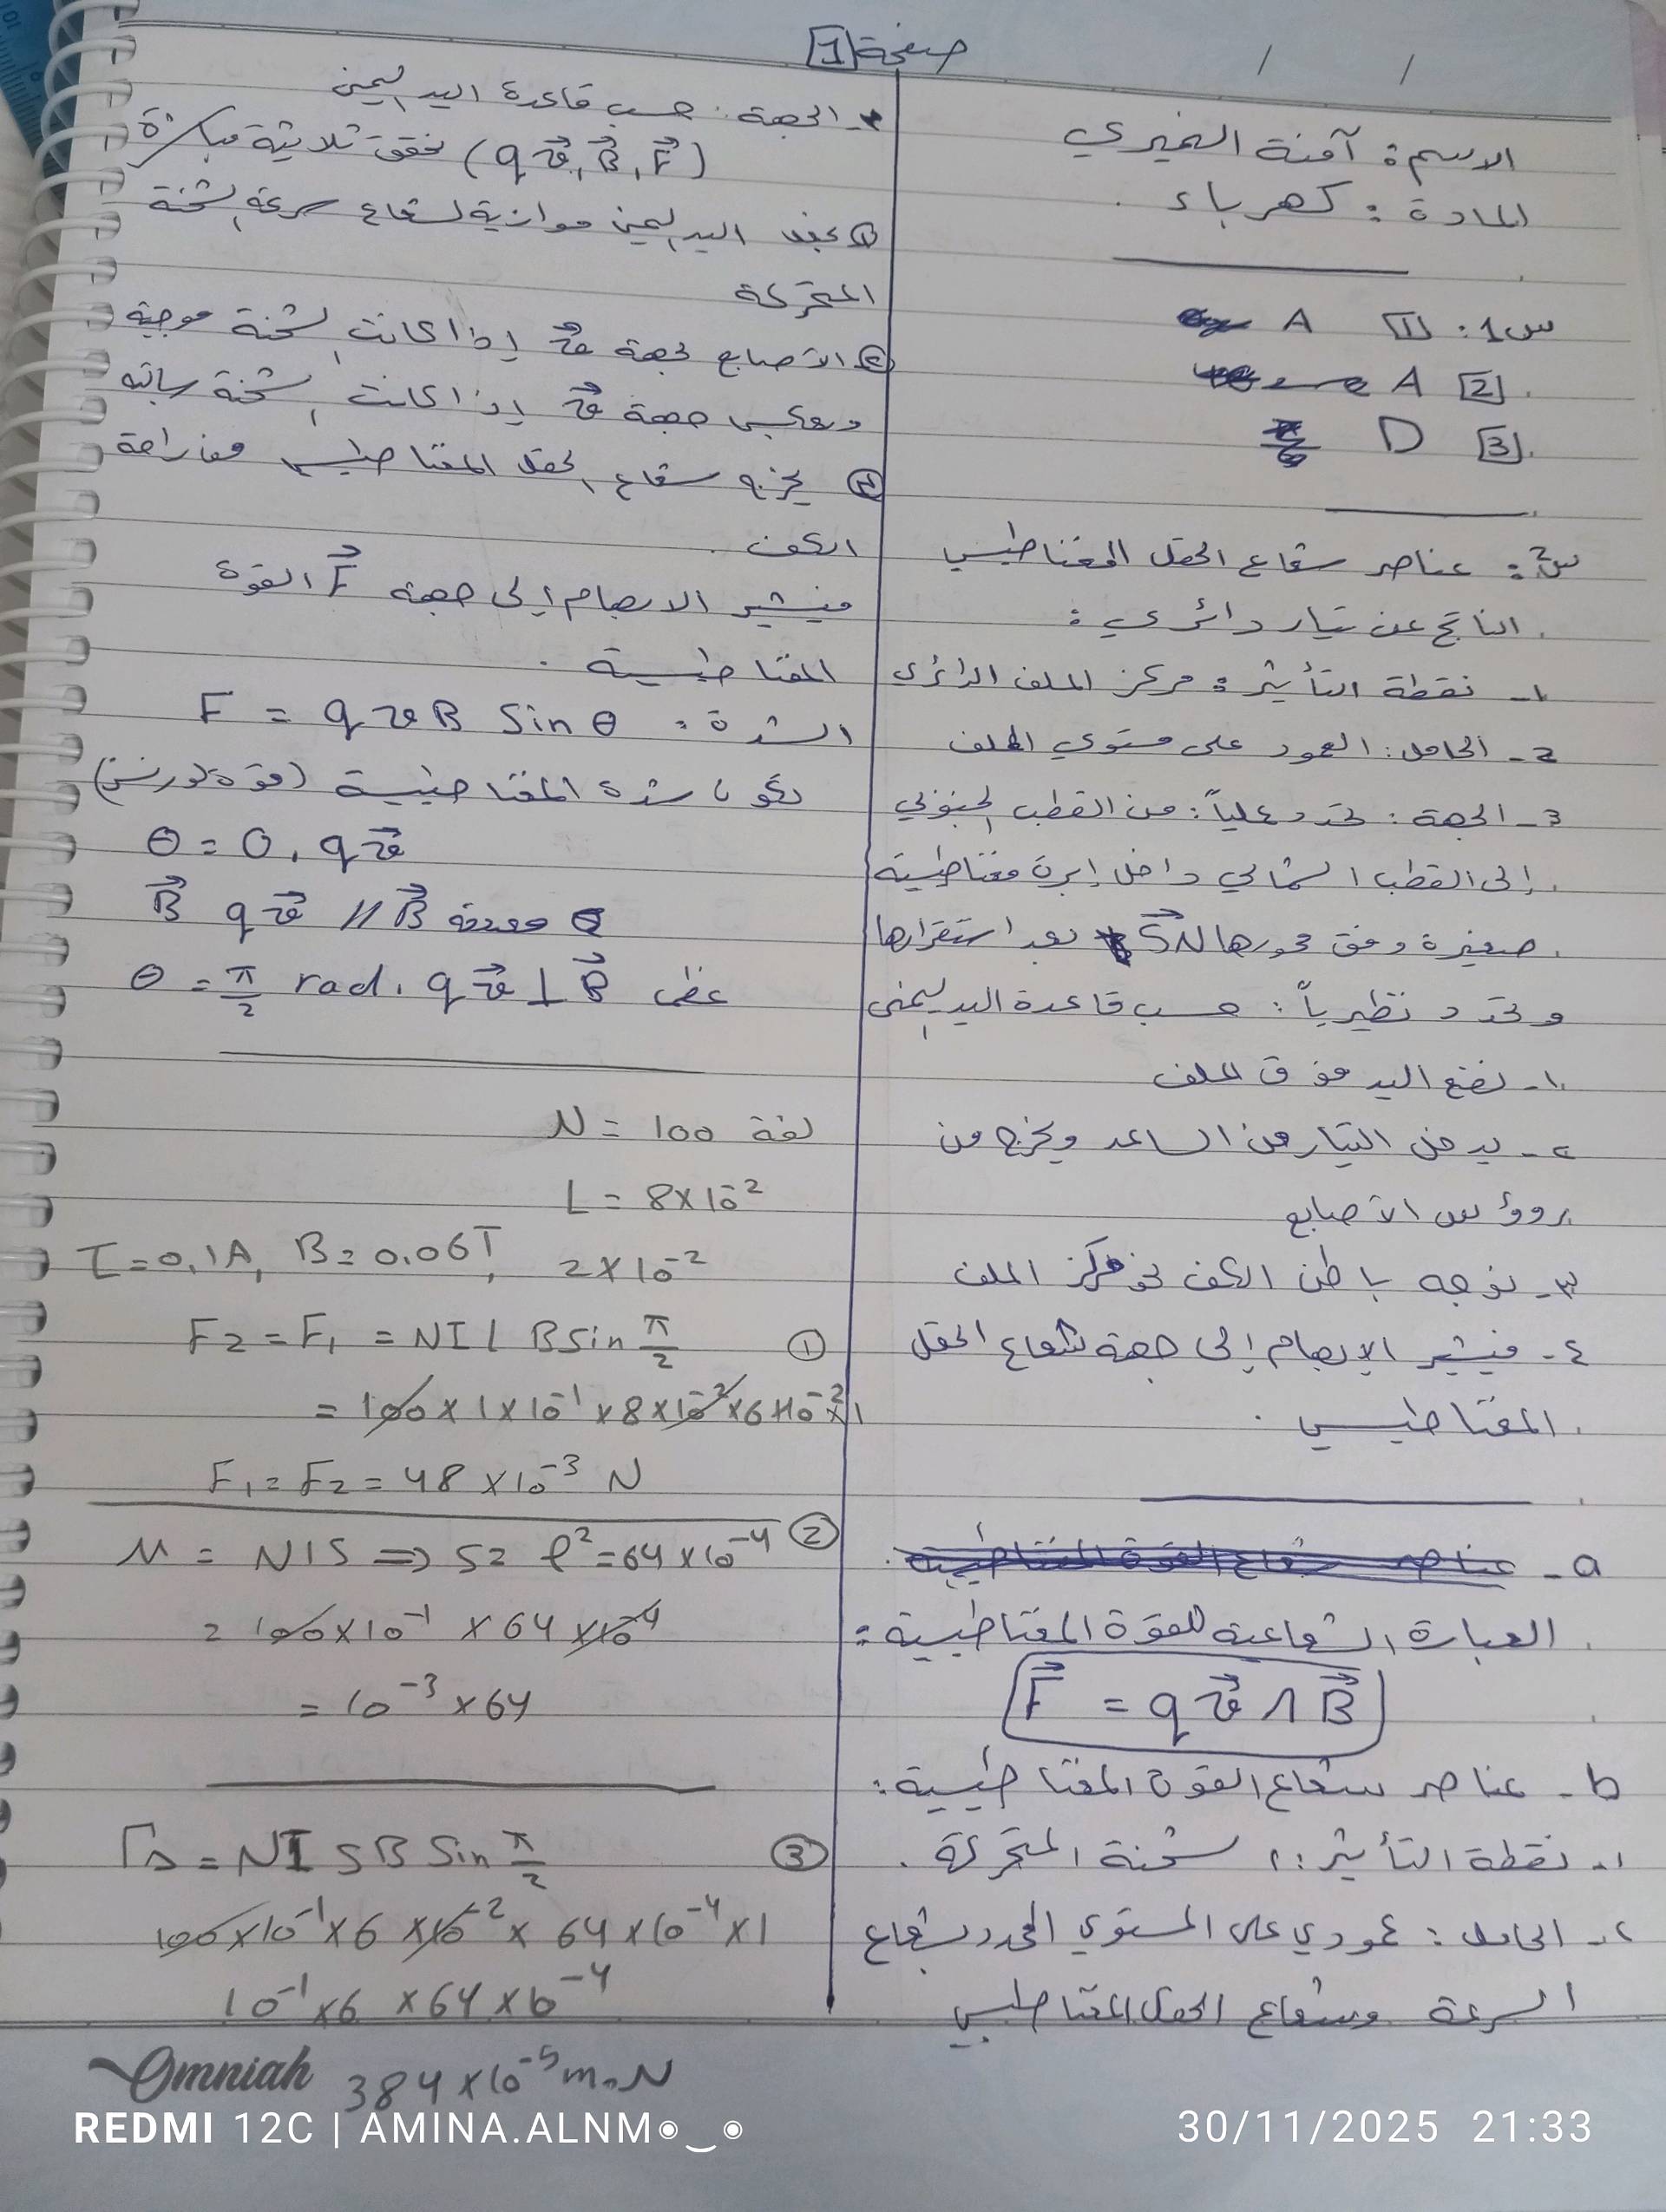 صفحة [1]
/ /
الاسم: آمنة النميري
المادة: كهرباء.
س1: [1] A
[2] A
[3] D
س2: عناصر شعاع الحقل المغناطيسي
الناتج عن تيار دائري:
1- نقطة التأثير: مركز الملف الدائري
2- الحامل: العمود على مستوي الملف
3- الجهة: تحدد عملياً: من القطب الجنوبي
إلى القطب الشمالي داخل إبرة مغناطيسية
صغيرة وفق محورها SN بعد استقرارها
وتحدد نظرياً: حسب قاعدة اليد اليمنى
١- نضع اليد فوق الملف
٢- يدخل التيار من الساعد ويخرج من
رووؤس الأصابع
٣- نوجه باطن الكف نحو مركز الملف
٤- فيشير الإبهام إلى جهة شعاع الحقل
المغناطيسي.
a- عناصر شعاع القوة المغناطيسية
العبارة الشعاعية للقوة المغناطيسية:
F⃗ = q v⃗ ∧ B⃗
b- عناصر شعاع القوة المغناطيسية:
١- نقطة التأثير: الشحنة المتحركة.
٢- الحامل: عمودي على المستوي المحدد بشعاع
السرعة وشعاع الحقل المغناطيسي
- الجهة: حسب قاعدة اليد اليمنى
(q v⃗, B⃗, F⃗) تحقق ثلاثية مباشرة
① نجعل اليد اليمنى موازية لشعاع سرعة الشحنة
المتحركة
② الأصابع بجهة v⃗ إذا كانت الشحنة موجبة
وبعكس جهة v⃗ إذا كانت الشحنة سالبة
③ يخرج شعاع الحقل المغناطيسي من راحة
الكف.
فيشير الابهام إلى جهة F⃗ القوة
المغناطيسية.
الشدة: F = q v B Sin θ
تكون شدة المغناطيسية (قوة لورنتز)
θ = 0, q v⃗
معدومة q v⃗ // B⃗ B⃗
عظمى θ = π/2 rad, q v⃗ ⊥ B⃗
N = 100 لفة
L = 8×10⁻²
I = 0,1A, B = 0.06T, 2×10⁻²
① F2 = F1 = NIL B sin π/2
= 100 × 1×10⁻¹ × 8×10⁻² × 6×10⁻² × 1
F1 = F2 = 48 × 10⁻³ N
② M = NIS ⇒ S = ℓ² = 64×10⁻⁴
= 100×10⁻¹ × 64 ×10⁻⁴
= 10⁻³ × 64
③ ΓΔ = NI S B Sin π/2
100×10⁻¹×6 ×10⁻² × 64×10⁻⁴×1
10⁻¹×6 ×64×10⁻⁴
384×10⁻⁵ m.N
Omniah
REDMI 12C | AMINA.ALNM◉‿◉
30/11/2025 21:33